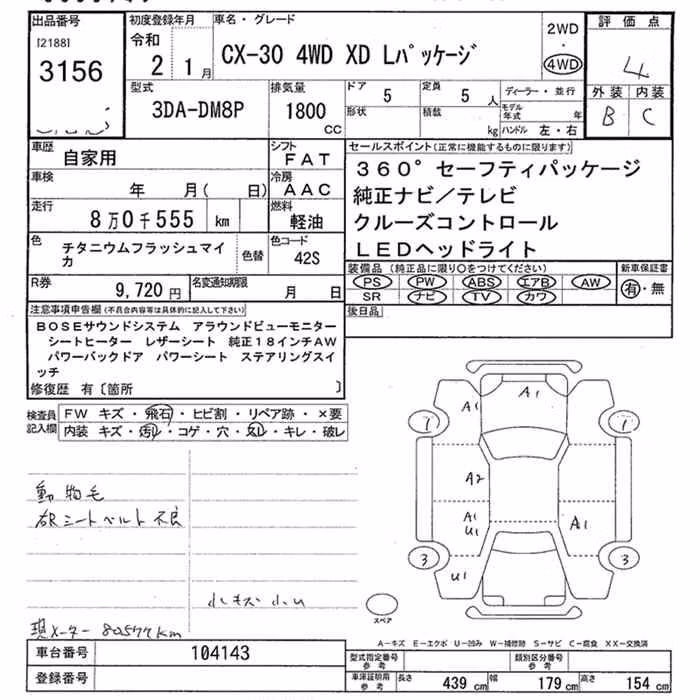 出品番号
[2188]
3156
初度登録年月
令和
2 1月
車名・グレード
CX-30 4WD XD Lパッケージ
2WD
・
4WD
評価点
4
外装 内装
B C
型式
3DA-DM8P
排気量
1800
CC
ドア
5
定員
5 人
形状
積載
kg
ディーラー・並行
モデル年式 年
ハンドル 左・右
車歴
自家用
シフト
FAT
車検
年 月( 日)
冷房
AAC
走行
8万0千555 km
燃料
軽油
色
チタニウムフラッシュマイカ
色替
色コード
42S
R券
9,720円
名変通知期限
月 日
セールスポイント(正常に機能するものに限ります)
360°セーフティパッケージ
純正ナビ/テレビ
クルーズコントロール
LEDヘッドライト
装備品(純正品に限り○をつけてください)
PS PW ABS エアB AW
SR ナビ TV カワ
新車保証書
有・無
後日品
注意事項申告欄(不具合内容等は具体的に記入して下さい)
BOSEサウンドシステム アラウンドビューモニター
シートヒーター レザーシート 純正18インチAW
パワーバックドア パワーシート ステアリングスイ
ッチ
修復歴 有〔箇所 〕
検査員記入欄
FW キズ・飛石・ヒビ割・リペア跡・×要
内装 キズ・汚レ・コゲ・穴・スレ・キレ・破レ
動物毛
右Rシートベルト不良
小キズ 小U
現メーター 80577km
A1
A1
1
1
A2
A1
U1
A1
3
3
U1
スペア
A-キズ E-エクボ U-凹み W-補修跡 S-サビ C-腐食 XX-交換済
車台番号
104143
登録番号
型式指定番号
参考
類別区分番号
参考
車庫証明用
参考
長さ 439 cm
幅 179 cm
高さ 154 cm